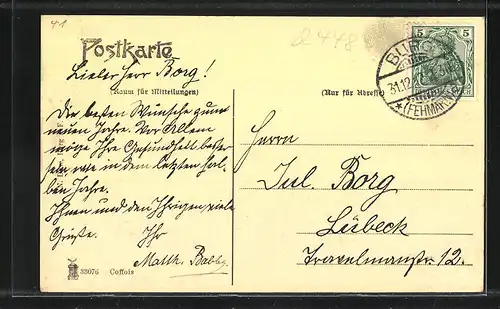 41
a 448
Postkarte
5 5
BURG
31.12.
*(FEHMARN)
Lieber Herr Borg!
(Raum für Mitteilungen)
(Nur für Adresse)
Die besten Wünsche zum
neuen Jahre. Vor Allem
möge Ihre Gesundheit besser
sein, wie in dem letzten hal-
ben Jahre.
Ihnen und den Ihrigen viele
Grüße. Ihr
Matth.
Herrn
Jul. Borg
Lübeck
Travelmannstr. 12.
33076 Coffois